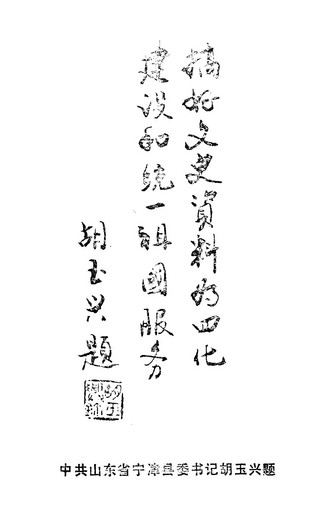 搞好文史資料为四化
建设和统一祖國服务
胡玉兴题
中共山东省宁津县委书记胡玉兴题